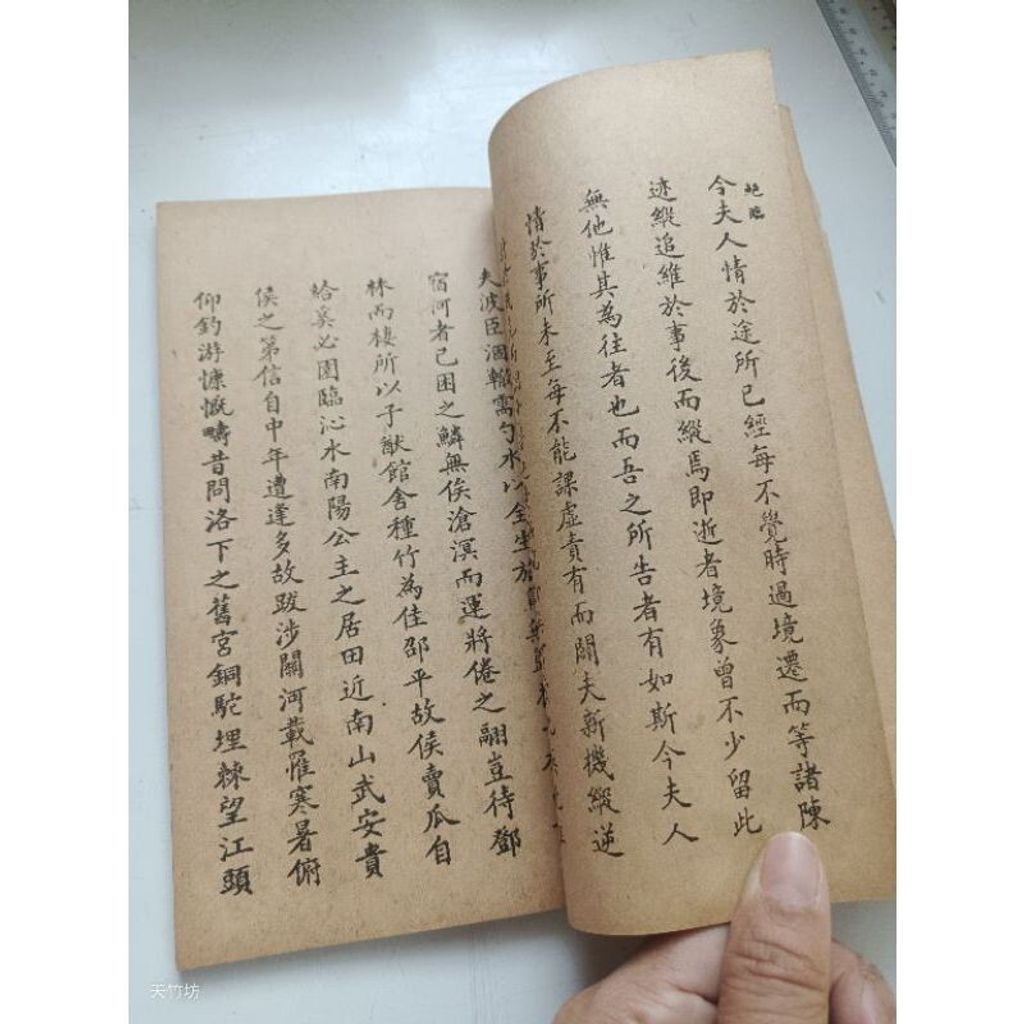 今夫人情於途所已經每不覺時過境遷而等諸陳
迹縱追維於事後而縱焉即逝者境象曾不少留此
無他惟其為往者也而吾之所告者有如斯今夫人
情於事所未至每不能課虛責有而闢夫新機緃逆
夫波臣涸轍需勺水以全生
宿河者已困之鱗無俟滄溟而運將倦之翮豈待鄧
林而棲所以子猷館舍種竹為佳邵平故侯賣瓜自
給奚必園臨沁水南陽公主之居田近南山武安貴
侯之第信自中年遭逢多故跋涉關河載罹寒暑俯
仰釣游慷慨疇昔問洛下之舊宮銅駝埋棘望江頭
天竹坊